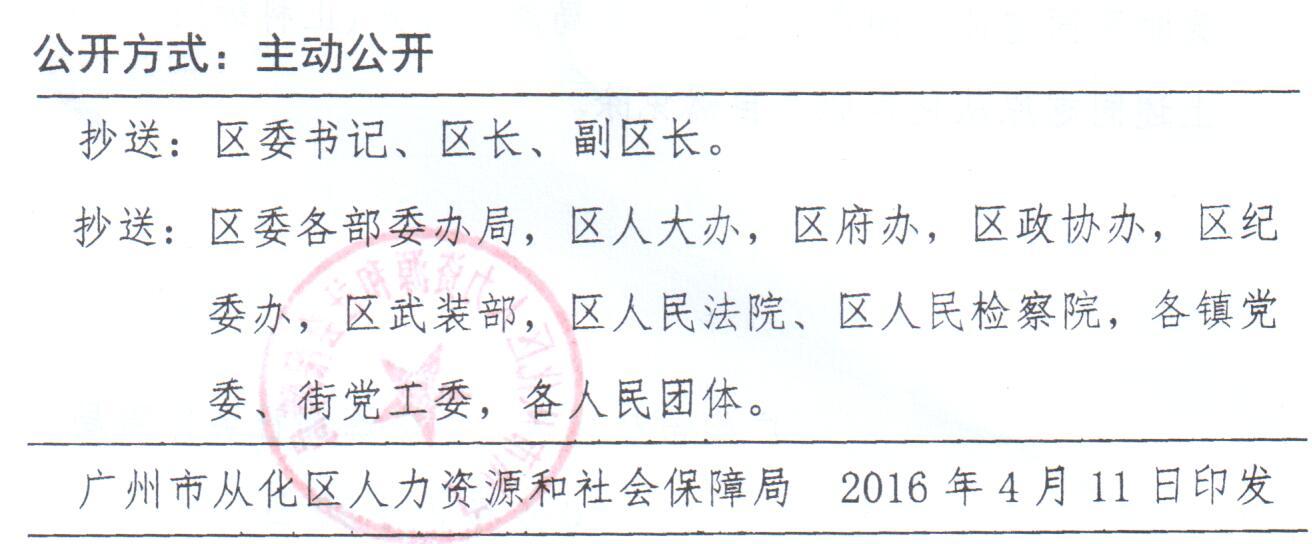 公开方式：主动公开
抄送：区委书记、区长、副区长。
抄送：区委各部委办局，区人大办，区府办，区政协办，区纪
委办，区武装部，区人民法院、区人民检察院，各镇党
委、街党工委，各人民团体。
广州市从化区人力资源和社会保障局 2016年4月11日印发